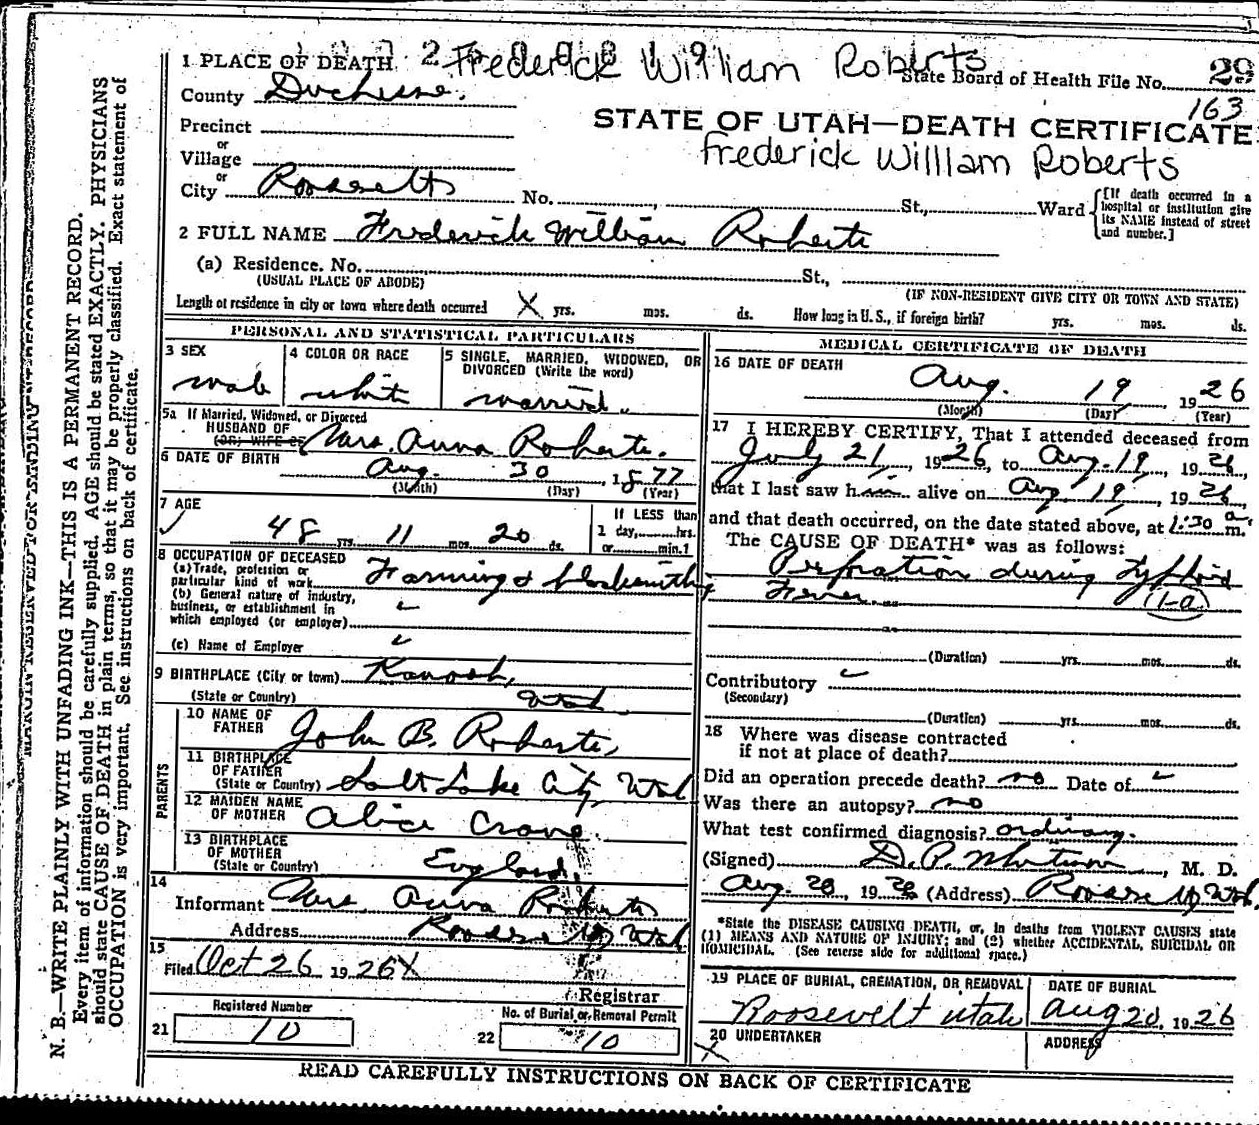 1 PLACE OF DEATH
Frederick William Roberts
State Board of Health File No. 29
163
County Duchesne.
STATE OF UTAH—DEATH CERTIFICATE
Frederick Willlam Roberts
Precinct
or
Village
or
City Roosevelt
No. St., Ward
[If death occurred in a
hospital or institution give
its NAME instead of street
and number.]
2 FULL NAME Frederick William Roberts
(a) Residence. No. St.,
(USUAL PLACE OF ABODE)
(IF NON-RESIDENT GIVE CITY OR TOWN AND STATE)
Length of residence in city or town where death occurred X yrs. mos. ds. How long in U. S., if foreign birth? yrs. mos. ds.
PERSONAL AND STATISTICAL PARTICULARS
3 SEX
male
4 COLOR OR RACE
white
5 SINGLE, MARRIED, WIDOWED, OR
DIVORCED (Write the word)
married.
5a If Married, Widowed, or Divorced
HUSBAND OF
(OR) WIFE OF Mrs. Anna Roberts.
6 DATE OF BIRTH
Aug. 30, 1877
(Month) (Day) (Year)
7 AGE
48 yrs. 11 mos. 20 ds.
If LESS than
1 day, hrs.
or min.?
8 OCCUPATION OF DECEASED
(a) Trade, profession or
particular kind of work Farming & blacksmithing
(b) General nature of industry,
business, or establishment in
which employed (or employer)
(c) Name of Employer
9 BIRTHPLACE (City or town) Kanosh,
(State or Country) Utah
PARENTS
10 NAME OF
FATHER John B. Roberts,
11 BIRTHPLACE
OF FATHER
(State or Country) Salt Lake City, Utah
12 MAIDEN NAME
OF MOTHER Alice Crane.
13 BIRTHPLACE
OF MOTHER
(State or Country) England,
14
Informant Mrs. Anna Roberts
Address Roosevelt Utah
15
Filed Oct 26 1926 X
Registrar
Registered Number
21 10
No. of Burial or Removal Permit
22 10
MEDICAL CERTIFICATE OF DEATH
16 DATE OF DEATH
Aug. 19, 1926
(Month) (Day) (Year)
17 I HEREBY CERTIFY, That I attended deceased from
July 21, 1926, to Aug. 19, 1926
that I last saw him alive on Aug 19, 1926
and that death occurred, on the date stated above, at 1:30 a. m.
The CAUSE OF DEATH* was as follows:
Perforation during Typhoid
Fever.
1-a
(Duration) yrs. mos. ds.
Contributory
(Secondary)
(Duration) yrs. mos. ds.
18 Where was disease contracted
if not at place of death?
Did an operation precede death? no Date of
Was there an autopsy? no
What test confirmed diagnosis? ordinary.
(Signed) D. P. Whitmore, M. D.
Aug. 20, 1926 (Address) Roosevelt Utah.
*State the DISEASE CAUSING DEATH, or, in deaths from VIOLENT CAUSES state
(1) MEANS AND NATURE OF INJURY; and (2) whether ACCIDENTAL, SUICIDAL OR
HOMICIDAL. (See reverse side for additional space.)
19 PLACE OF BURIAL, CREMATION, OR REMOVAL
Roosevelt utah
DATE OF BURIAL
Aug 20, 1926
20 UNDERTAKER
X
ADDRESS
READ CAREFULLY INSTRUCTIONS ON BACK OF CERTIFICATE
MARGIN RESERVED FOR BINDING
N. B.—WRITE PLAINLY WITH UNFADING INK—THIS IS A PERMANENT RECORD.
Every item of information should be carefully supplied. AGE should be stated EXACTLY. PHYSICIANS
should state CAUSE OF DEATH in plain terms, so that it may be properly classified. Exact statement of
OCCUPATION is very important. See instructions on back of certificate.